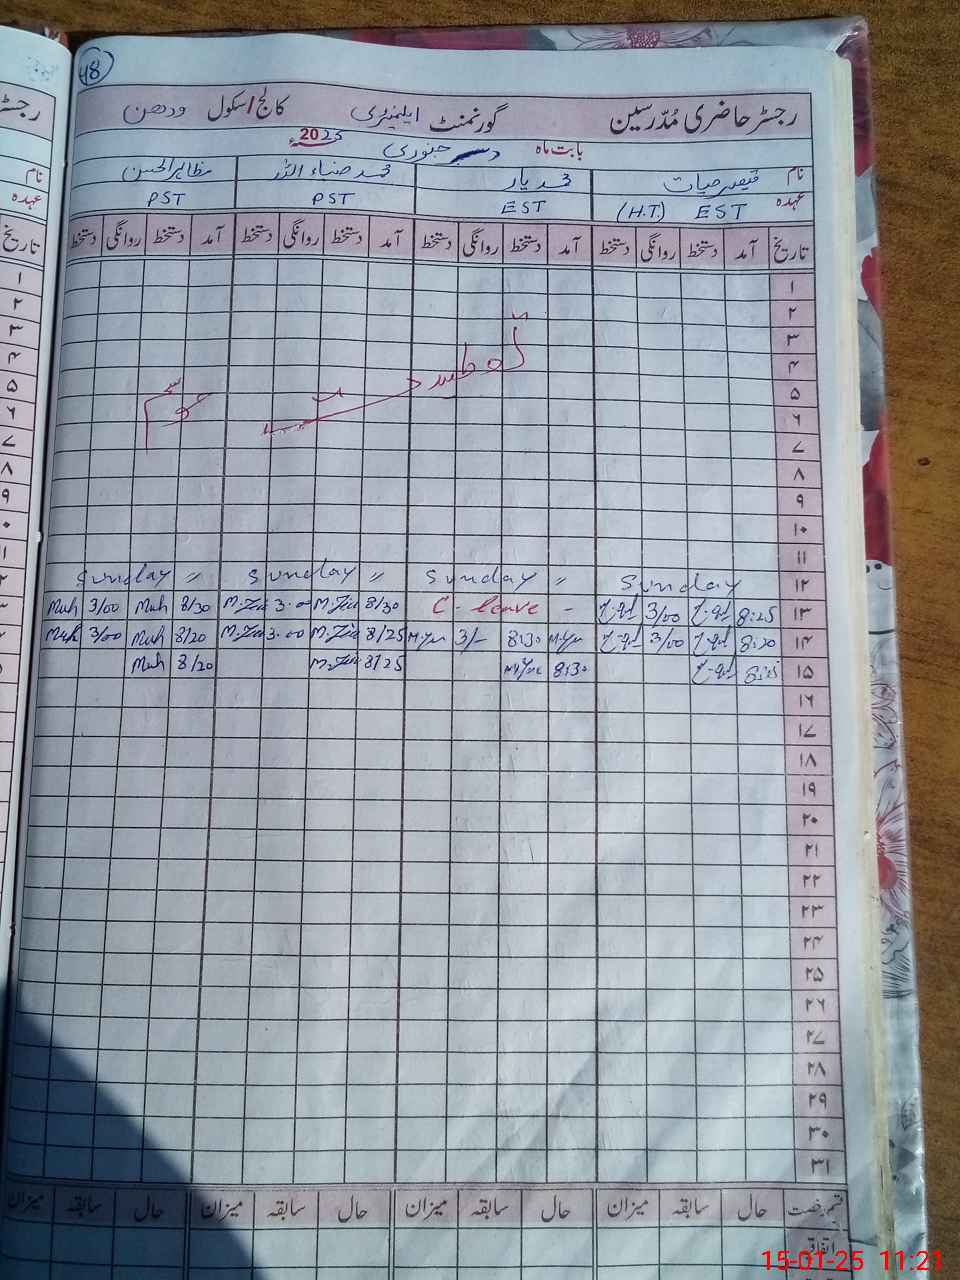 48
رجسٹر حاضری مُدّرسین گورنمنٹ ایلیمنٹری کالج/اسکول ودھن
بابت ماہ جنوری 2025
نام قیصر حیات محمد یار محمد ضیاء اللہ مظاہر الحسن
عہدہ EST (H.T) EST PST PST
تاریخ آمد دستخط روانگی دستخط آمد دستخط روانگی دستخط آمد دستخط روانگی دستخط آمد دستخط روانگی دستخط
۱
۲
۳
۴
۵
۶
۷
۸
۹
۱۰
۱۱
۱۲ Sunday Sunday " Sunday " Sunday "
۱۳ 8:25 3/00 C-leave - 8/30 M.Zia 3.00 M.Zia 8/30 Muh 3/00 Muh
۱۴ 8:20 3/00 M.Yar 8:30 3/- M.Yar 8/25 M.Zia 3.00 M.Zia 8/20 Muh 3/00 Muh
۱۵ 8:25 8:30 M.Yar 8/25 M.Zia 8/20 Muh
۱۶
۱۷
۱۸
۱۹
۲۰
۲۱
۲۲
۲۳
۲۴
۲۵
۲۶
۲۷
۲۸
۲۹
۳۰
۳۱
قسم رخصت حال سابقہ میزان حال سابقہ میزان حال سابقہ میزان حال سابقہ میزان
اتفاقیہ
15-01-25 11:21